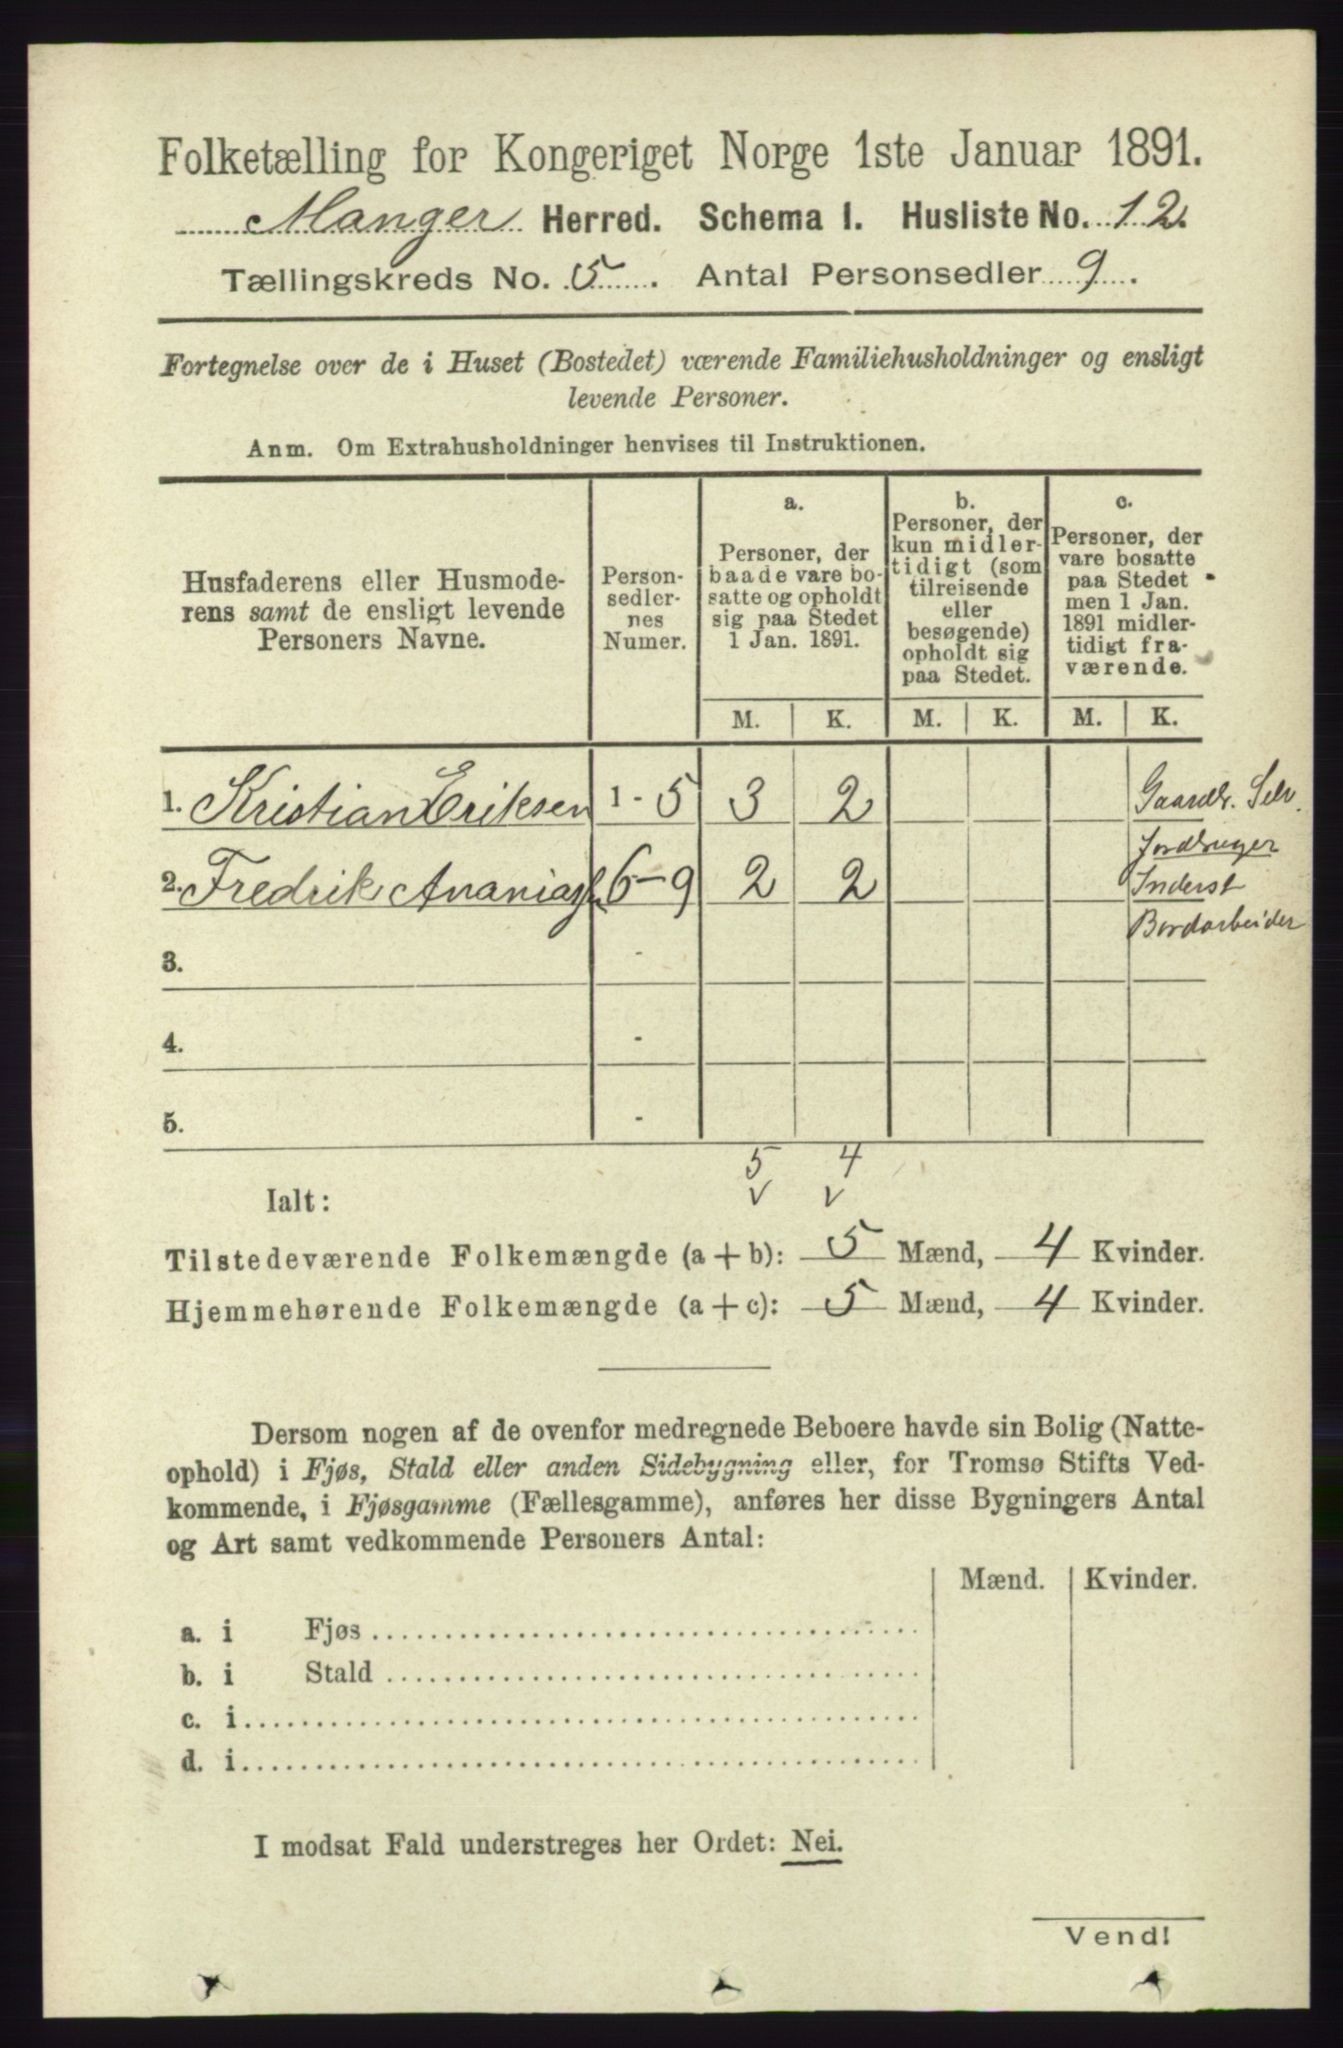 Folketælling for Kongeriget Norge 1ste Januar 1891.
Manger Herred. Schema I. Husliste No. 12.
Tællingskreds No. 5. Antal Personsedler 9.
Fortegnelse over de i Huset (Bostedet) værende Familiehusholdninger og ensligt
levende Personer.
Anm. Om Extrahusholdninger henvises til Instruktionen.
Husfaderens eller Husmode-
rens samt de ensligt levende
Personers Navne.
Person-
sedler-
nes
Numer.
a.
Personer, der
baade vare bo-
satte og opholdt
sig paa Stedet
1 Jan. 1891.
b.
Personer, der
kun midler-
tidigt (som
tilreisende
eller
besøgende)
opholdt sig
paa Stedet.
c.
Personer, der
vare bosatte
paa Stedet
men 1 Jan.
1891 midler-
tidigt fra-
værende.
M. K. M. K. M. K.
1. Kristian Eriksen 1 - 5 3 2 Gaardbr. Selv.
Jordbruger
2. Fredrik Ananiass. 6 - 9 2 2 Inderst
Bordarbeider
3. -
4. -
5. -
5 4
v v
Ialt:
Tilstedeværende Folkemængde (a + b): 5 Mænd, 4 Kvinder.
Hjemmehørende Folkemængde (a + c): 5 Mænd, 4 Kvinder.
Dersom nogen af de ovenfor medregnede Beboere havde sin Bolig (Natte-
ophold) i Fjøs, Stald eller anden Sidebygning eller, for Tromsø Stifts Ved-
kommende, i Fjøsgamme (Fællesgamme), anføres her disse Bygningers Antal
og Art samt vedkommende Personers Antal:
Mænd. Kvinder.
a. i Fjøs
b. i Stald
c. i
d. i
I modsat Fald understreges her Ordet: Nei.
Vend!